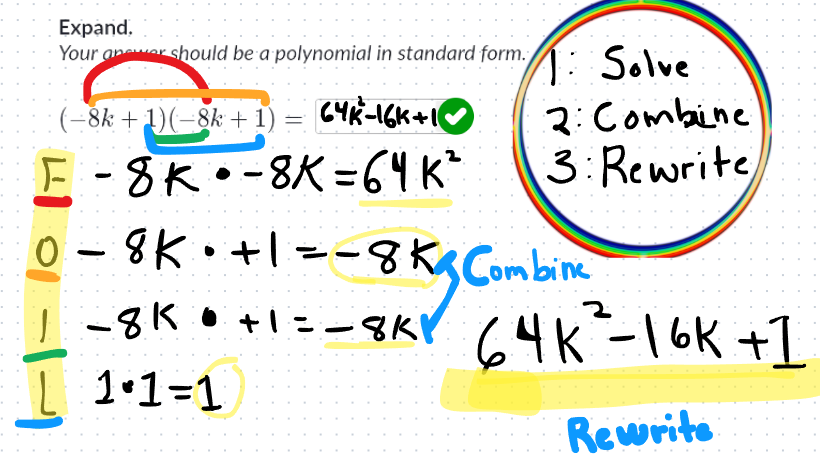 Expand.
Your answer should be a polynomial in standard form.
(−8k + 1)(−8k + 1) = 64K²-16K+1
1: Solve
2: Combine
3: Rewrite
F -8K • -8K = 64K²
O - 8K • +1 = -8K
I -8K • +1 = -8K
Combine
L 1•1=1
64K²-16K+1
Rewrite